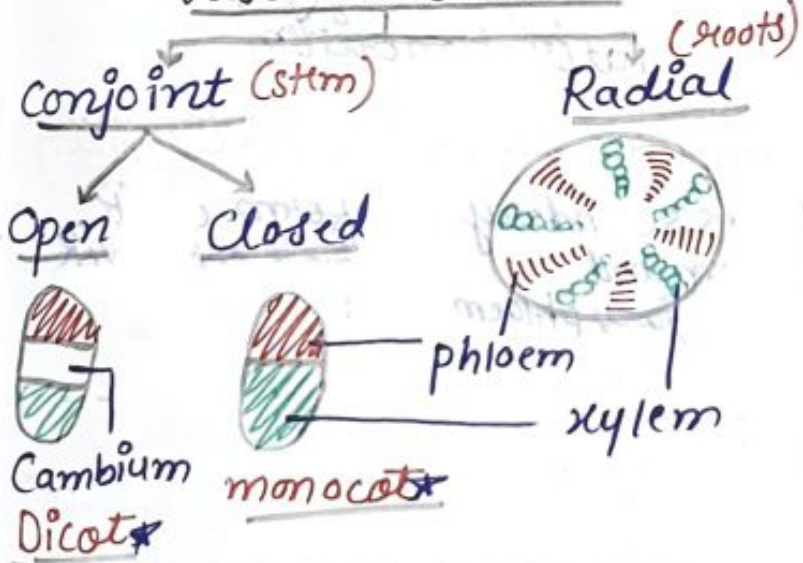 (roots)
Conjoint (stem)
Radial
Open
Closed
phloem
xylem
Cambium
monocot
Dicot